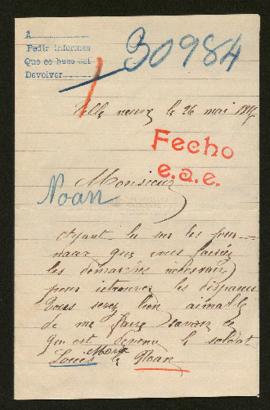 2
Pedir informes
Que se buse
Devolver
30984
le 26 mai
Fecho
e.a.e.
Monsieur
Noan
Ayant lu sur les jour
naux que vous faisiez
les démarches nécessaires
pour retrouver les disparus
Vous serez bien aimable
de me faire savoir ce
qu'est devenu le soldat
Louis Marie le Noan